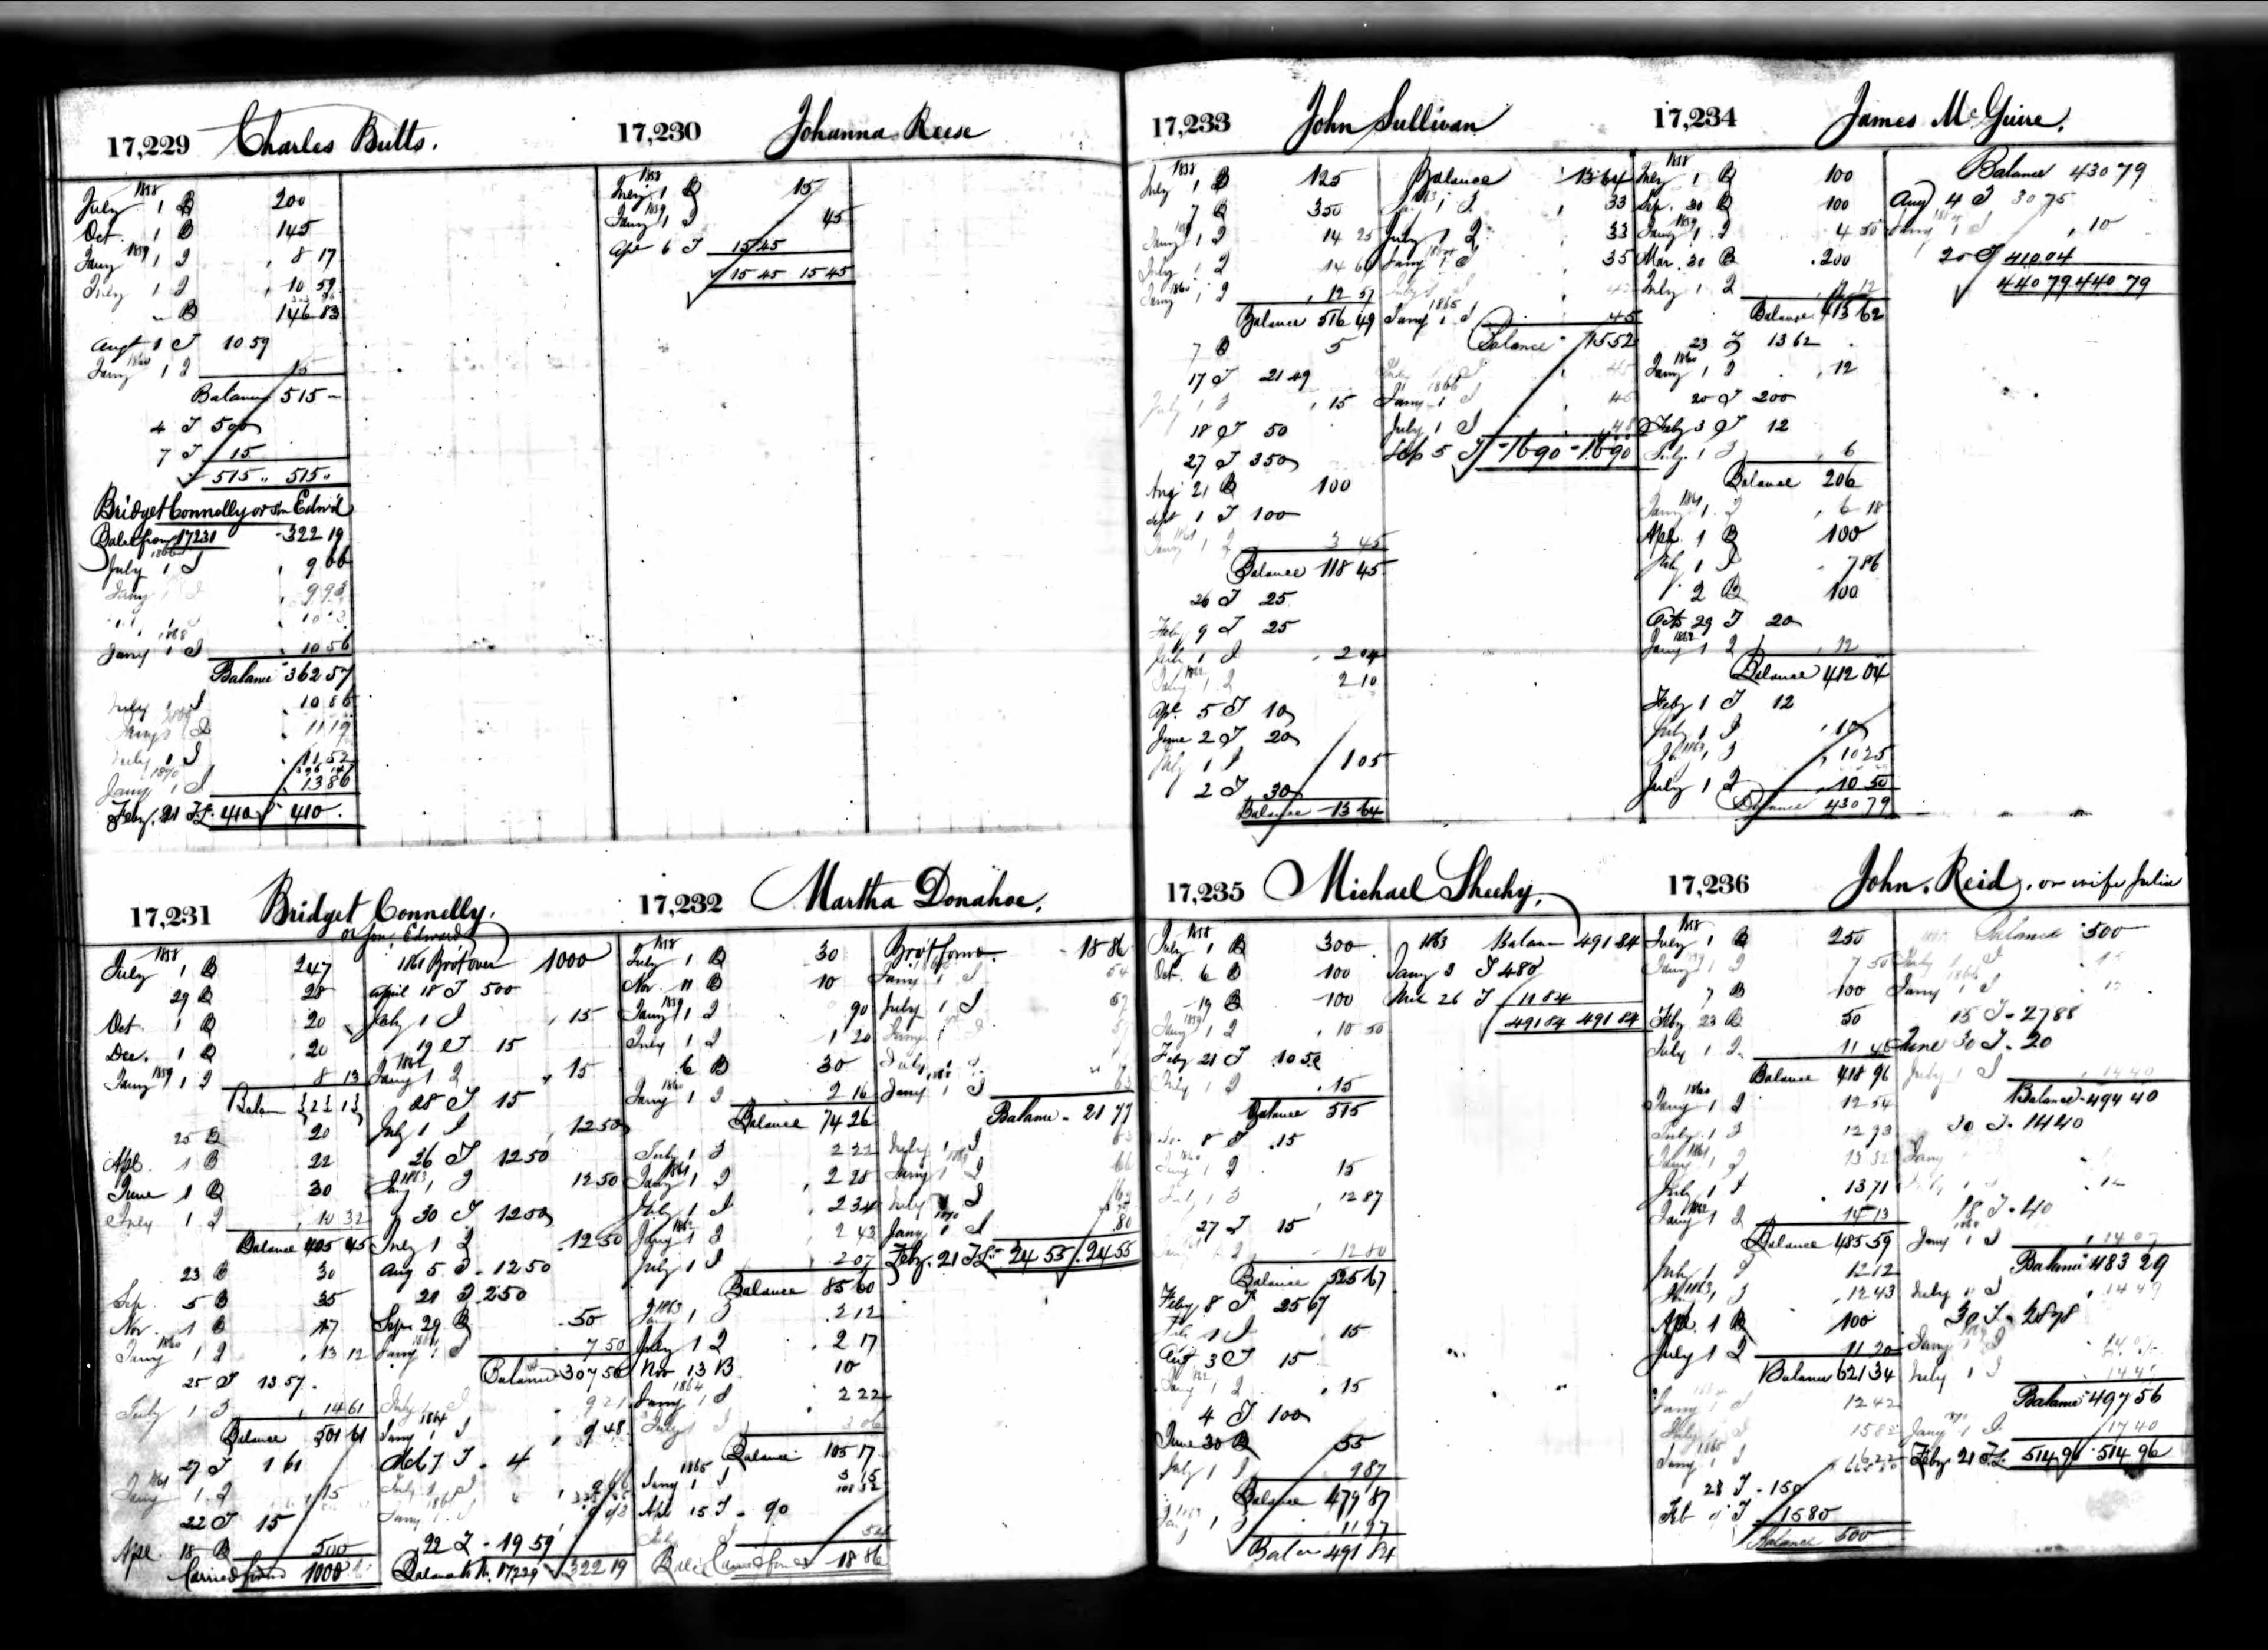 17,229 Charles Butts.
1858
July 1 B 200
Oct. 1 B 145
Jany 1859 1 I 8 17
July 1 I 10 59
" B 146 83
Augt 1 T 10 59
Jany 1860 1 I 15
Balance 515 –
4 T 500
7 T 15
515 .. 515 ..
Bridget Connelly or Son Edwd
Bale from 17231 322 19
1866
July 1 I 9 66
Jany 1 I 9 93
1868
Jany 1 I 10 56
Balance 362 57
July 1 I 10 86
Jany 1 I 11 19
July 1 I 11 52
1870
Jany 1 I 13 86
Feby. 21 T 410 410.
17,230 Johanna Reese
1858
July 1 B 15
Jany 1859 1 I 45
Apl 6 T 15 45
15 45 15 45
17,231 Bridget Connelly.
or son, Edward
1858
July 1 B 247
29 B 28
Oct. 1 B 20
Dec. 1 B 20
Jany 1859 1 I 8 13
25 B 20
Apl. 1 B 22
June 1 B 30
July 1 I 10 32
Balance 405 45
23 B 30
Sep. 5 B 35
Nov. 1 B 17
Jany 1860 1 I 13 12
25 T 13 57
July 1 I 14 61
Balance 501 61
27 T 1 61
Jany 1861 1 I 15
22 T 15
Apl. 18 B 500
Carried forwd 1000
1861 Brot over 1000
April 18 T 500
July 1 I 15
19 T 15
Jany 1862 1 I 15
28 T 15
July 1 I 12 50
26 T 12 50
Jany 1863 1 I 12 50
30 T 12 50
July 1 I 12 50
Aug 5 T 12 50
21 T 250
Sep 29 B 50
Jany 1 I 7 50
Balance 307 50
July 1 I 9 21
Jany 1 I 9 48
T 4
July 1 I 9 66
Jany 1 I 9 93
22 T 19 59
Balance to No. 17229 322 19
17,232 Martha Donahoe.
1858
July 1 B 30
Nov. 11 B 10
Jany 1859 1 I 90
July 1 I 1 20
6 B 30
Jany 1860 1 I 2 16
Balance 74 26
July 1 I 2 22
Jany 1861 1 I 2 28
July 1 I 2 34
Jany 1862 1 I 2 43
July 1 I 2 07
Balance 85 60
Jany 1863 1 I 2 12
July 1 I 2 17
Nov 13 B 10
Jany 1864 1 I 2 22
July 1 I 3 06
Balance 105 17
Jany 1865 1 I 3 15
108 32
Apl 15 T 90
July 1 I 54
Bale Carried forwd 18 86
Brot forwd. 18 86
Jany 1 I 54
July 1 I 57
Jany 1 I 57
July 1 I
Jany 1 I 63
Balance 21 77
July 1 I 63
Jany 1 I 66
July 1 I 69
Jany 1870 1 I 80
Feby. 21 T 24 55 24 55
17,233 John Sullivan
1858
July 1 B 125
7 B 350
Jany 1 I 14 25
July 1 I 14 67
Jany 1860 1 I 12 57
Balance 516 49
7 B 5
17 T 21 49
July 1 I 15
18 T 50
27 T 350
Aug 21 B 100
Sept 1 T 100
Jany 1861 1 I 3 45
Balance 118 45
26 T 25
Feby 9 T 25
July 1 I 2 04
Jany 1862 1 I 2 10
Apl. 5 T 10
June 2 T 20
July 1 I 1 05
2 T 30
Balance 13 64
Balance 13 64
1 I 33
July 1 I 33
Jany 1 I 35
July 1 I
Jany 1865 1 I 45
Balance 15 52
July 1 I 45
Jany 1866 1 I 45
July 1 I 48
Sep 5 T 16 90 16 90
17,234 James McGuire.
1858
July 1 B 100
Sep. 30 B 100
Jany 1859 1 I 4 50
Mar. 30 B 200
July 1 I 9 12
Balance 413 62
23 T 13 62
Jany 1860 1 I 12
20 T 200
July 3 T 12
July 1 I 6
Balance 206
Jany 1861 1 I 6 18
Apl. 1 B 100
July 1 I 7 86
2 B 100
Octo 29 T 20
Jany 1862 1 I 12
Balance 412 04
Feby 1 T 12
July 1 I 10
Jany 1863 1 I 10 25
July 1 I 10 50
Balance 430 79
Balance 430 79
Aug 4 T 30 75
Jany 1 I 10
20 T 410 04
440 79 440 79
17,235 Michael Sheehy.
1858
July 1 B 300
Oct. 6 B 100
19 B 100
Jany 1859 1 I 10 50
Feby 21 T 10 50
July 1 I 15
Balance 515
8 T 15
Jany 1860 1 I 15
July 1 I 12 87
27 T 15
1 I 12 80
Balance 525 67
Feby 8 T 25 67
July 1 I 15
Aug 3 T 15
Jany 1 I 15
4 T 100
June 30 B 55
July 1 I 9 87
Balance 479 87
Jany 1863 1 I 11 97
Balance 491 84
1863 Balance 491 84
Jany 3 T 480
Mch 26 T 11 84
491 84 491 84
17,236 John. Reid. or wife Julia
1858
July 1 B 250
Jany 1 I 7 50
7 B 100
Feby 23 B 50
July 1 I 11 46
Balance 418 96
Jany 1860 1 I 12 54
July 1 I 12 93
Jany 1861 1 I 13 32
July 1 I 13 71
Jany 1862 1 I 14 13
Balance 485 59
July 1 I 12 12
Jany 1863 1 I 12 43
Apl. 1 B 100
July 1 I 11 20
Balance 621 34
Jany 1 I 12 42
July 1 I 15 82
Jany 1865 1 I 16 22
28 T 150
Feb T 15 80
Balance 500
Balance 500
July 1 I 15
Jany 1866 1 I 15
15 T 27 88
June 30 T 20
July 1 I 14 40
Balance 494 40
30 T 14 40
Jany
July 1 I 14
18 T 40
Jany 1868 1 I 14 07
Balance 483 29
July 1 I 14 49
30 T 28 78
Jany 1869 1 I 14 07
July 1 I 14 49
Balance 497 56
Jany 1870 1 I 17 40
Feby. 21 T 514 96 514 96